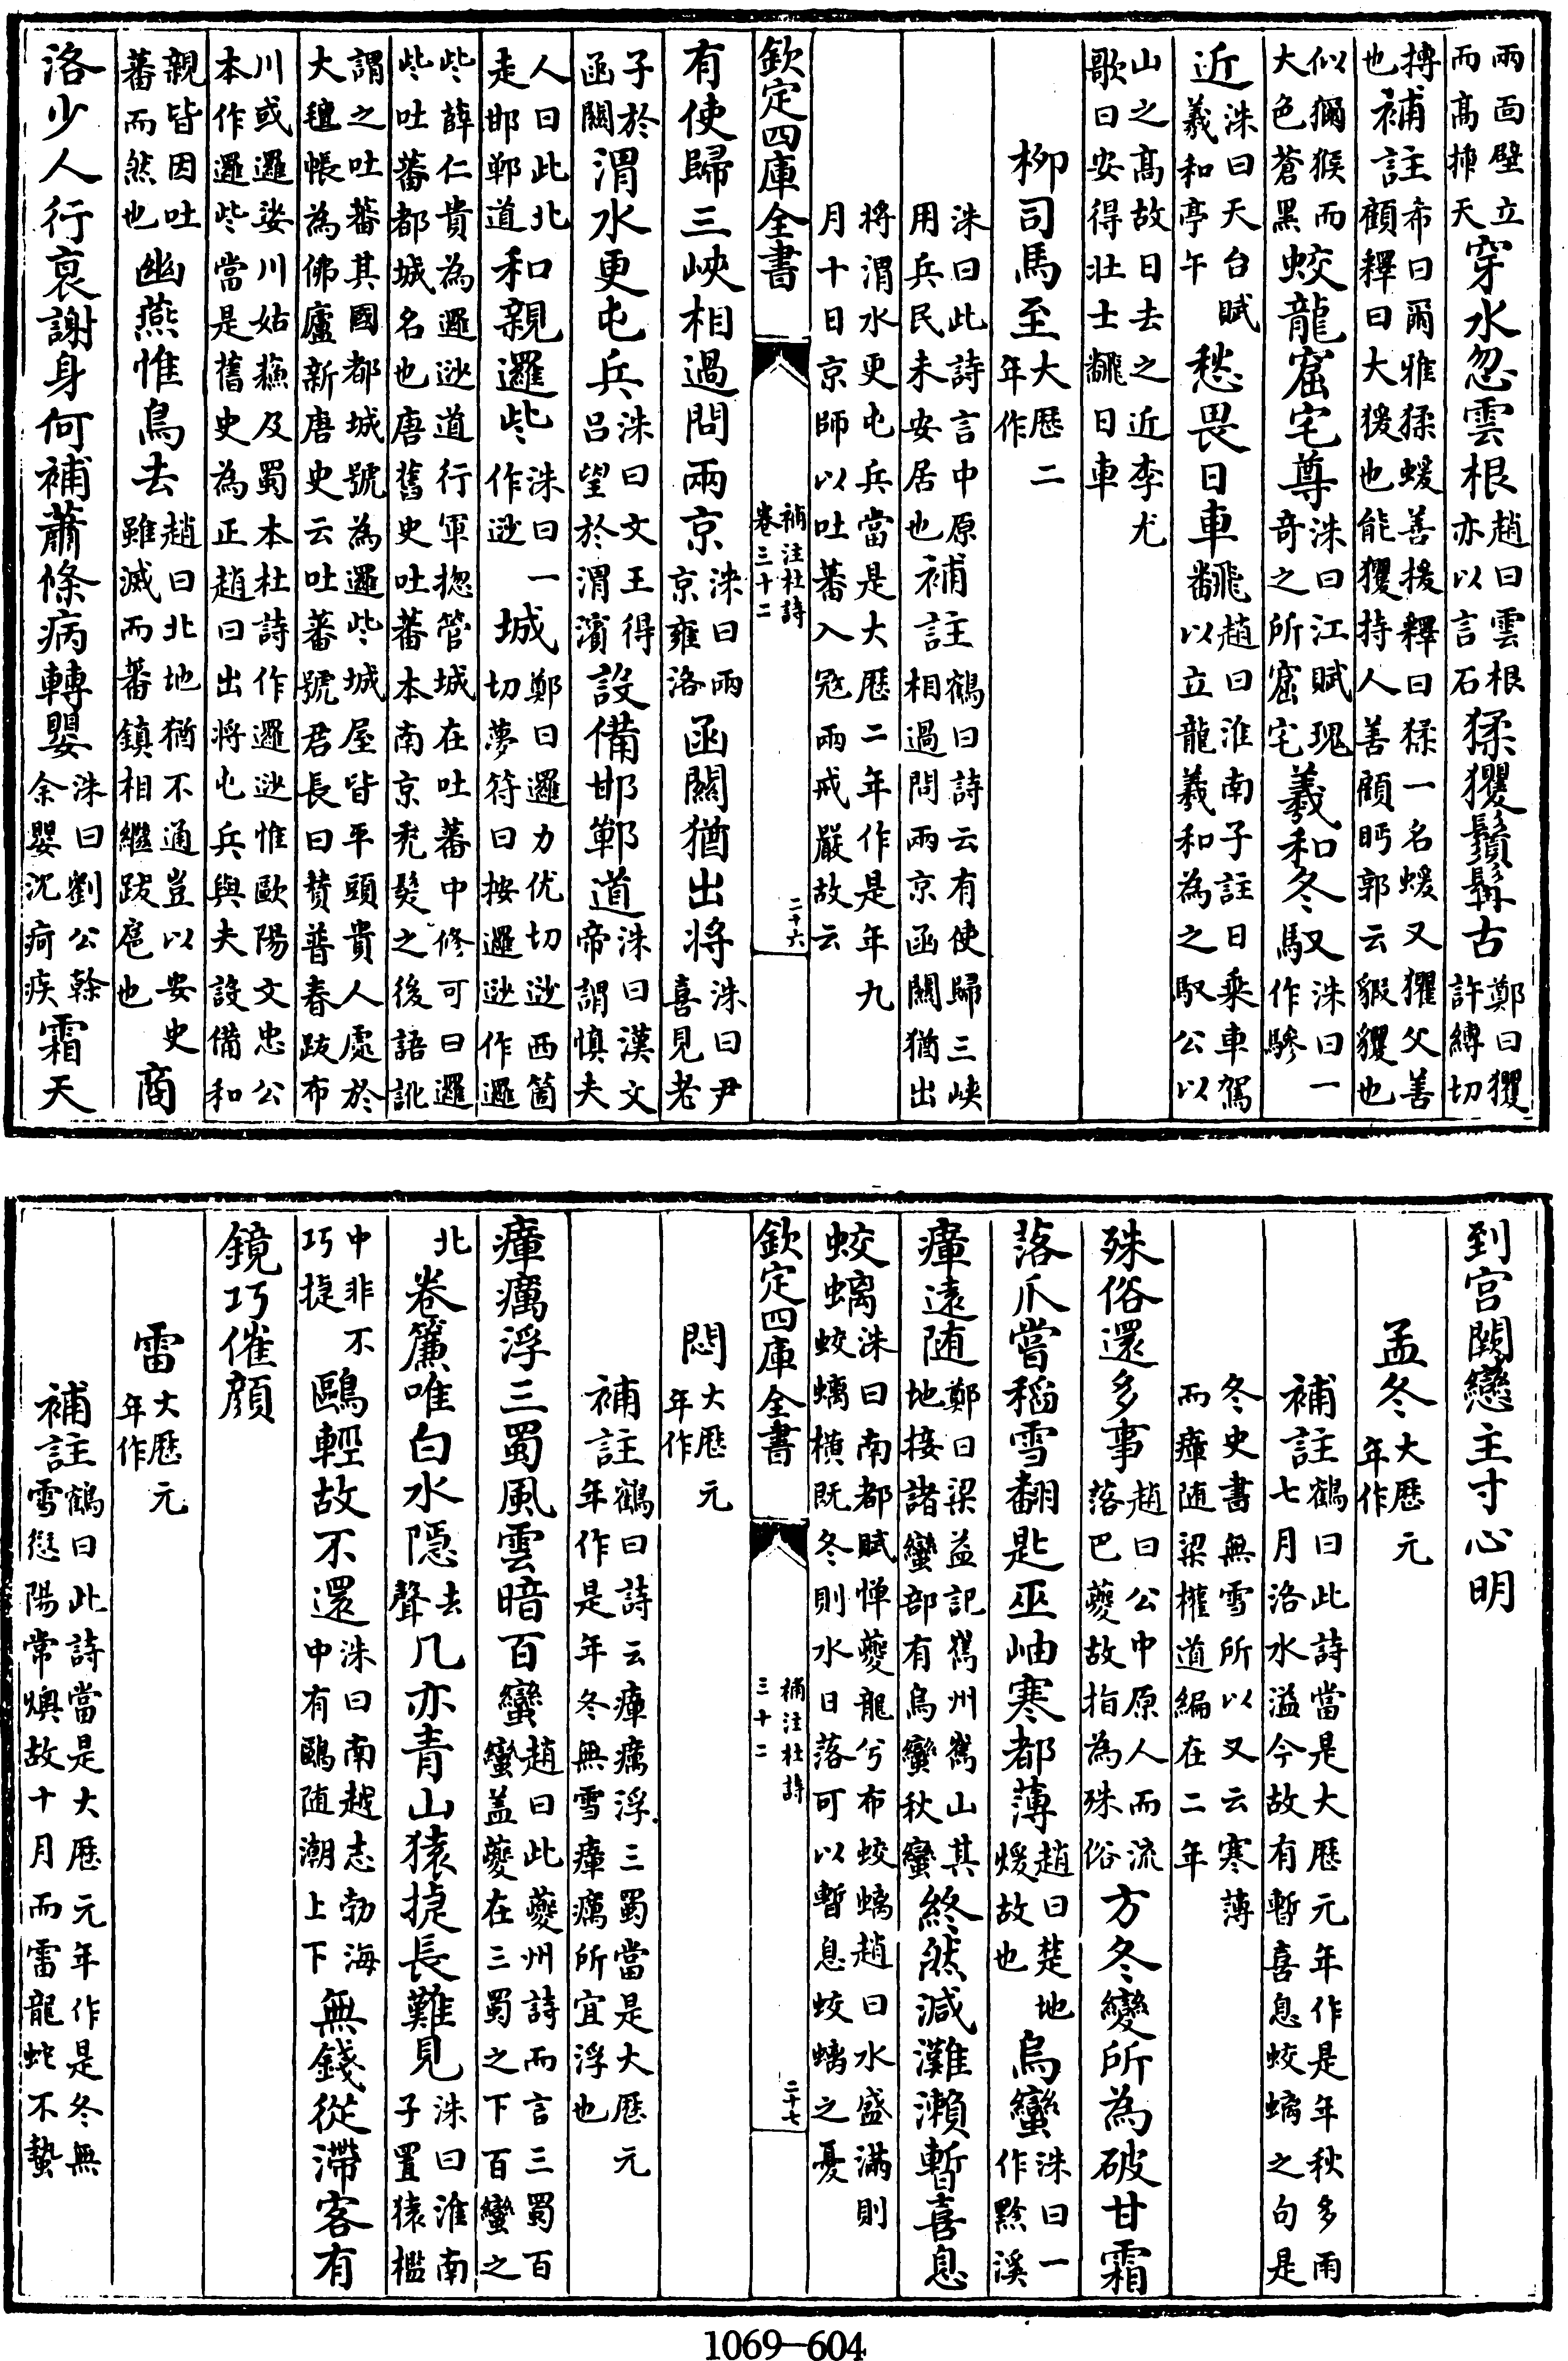 兩面壁立而髙揷天穿水忽雲根趙曰雲根亦以言石猱玃鬚髯古鄭曰玃許縛切
搏也補註希曰爾雅猱蝯善援釋曰猱一名蝯又玃父善顧釋曰大猨也能玃持人善顧眄郭云豭玃也
似獼猴而大色蒼黒蛟龍窟宅尊洙曰江賦瑰奇之所窟宅羲和冬馭洙曰一作驂
近洙曰天台賦羲和亭午愁畏日車翻趙曰淮南子註日乗車駕以立龍羲和為之馭公以
山之髙故曰去之近李尤歌曰安得壯士翻日車
栁司馬至大厯二年作
洙曰此詩言中原用兵民未安居也補註鶴曰詩云有使歸三峽相過問兩京函關猶出
将渭水更屯兵當是大厯二年作是年九月十日京師以吐蕃入冦兩戒嚴故云
欽定四庫全書
補注杜詩
卷三十二
二十六
有使歸三峽相過問兩京洙曰兩京雍洛函關猶出将洙曰尹喜見老
子於函關渭水更屯兵洙曰文王得吕望於渭濱設備邯鄲道洙曰漢文帝謂慎夫
人曰此北走邯鄲道和親邏些洙曰一作逤城鄭曰邏力优切逤西箇切夢符曰按邏逤作邏
些薛仁貴為邏逤道行軍揔管城在吐蕃中修可曰邏些吐蕃都城名也唐舊史吐蕃本南京禿髮之後語訛
謂之吐蕃其國都城號為邏些城屋皆平頭貴人處於大氊帳為佛廬新唐史云吐蕃號君長曰賛普春跋布
川或邏娑川姑蘓及蜀本杜詩作邏逤惟歐陽文忠公本作邏些當是舊史為正趙曰出将屯兵與夫設備和
親皆因吐蕃而然也幽燕惟鳥去趙曰北地猶不通豈以安史雖滅而蕃鎮相繼跋扈也商
洛少人行衰謝身何補蕭條病轉嬰洙曰劉公幹余嬰沉痾疾霜天
到宫闕戀主寸心明
孟冬大厯元年作
補註鶴曰此詩當是大厯元年作是年秋多雨七月洛水溢今故有暫喜息蛟螭之句是
冬史書無雪所以又云寒薄而瘴随梁權道編在二年
殊俗還多事趙曰公中原人而流落巴夔故指為殊俗方冬變所為破甘霜
落爪嘗稻雪翻匙巫岫寒都薄趙曰楚地煖故也烏蠻洙曰一作黔溪
瘴遠随鄭曰梁益記嶲州嶲山其地接諸蠻部有烏蠻秋蠻終然減灘瀨暫喜息
蛟螭洙曰南都賦惮夔龍兮布蛟螭趙曰水盛滿則蛟螭橫既冬則水日落可以暫息蛟螭之憂
欽定四庫全書
補注杜詩
三十二
二十七
悶大厯元年作
補註鶴曰詩云瘴癘浮三蜀當是大厯元年作是年冬無雪瘴癘所宜浮也
瘴癘浮三蜀風雲暗百蠻趙曰此夔州詩而言三蜀百蠻盖夔在三蜀之下百蠻之
北卷簾唯白水隠去聲几亦青山猿捷長難見洙曰淮南子置猿檻
中非不巧捷鷗輕故不還洙曰南越志勃海中有鷗随潮上下無錢從滯客有
鏡巧催顔
雷大厯元年作
補註鶴曰此詩當是大厯元年作是冬無雪愆陽常燠故十月而雷龍蛇不蟄
1069-604